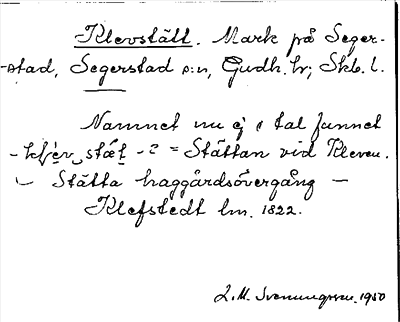 Klevstätt. Mark på Seger-
stad, Segerstad s:n, Gudh. hr; Skb. l.
Namnet nu ej i tal funnet
stæt - ? = Stättan vid Kleven.
Stätta haggårdsövergång —
Klefstedt lm. 1822.
L. M. Svenungsson. 1950